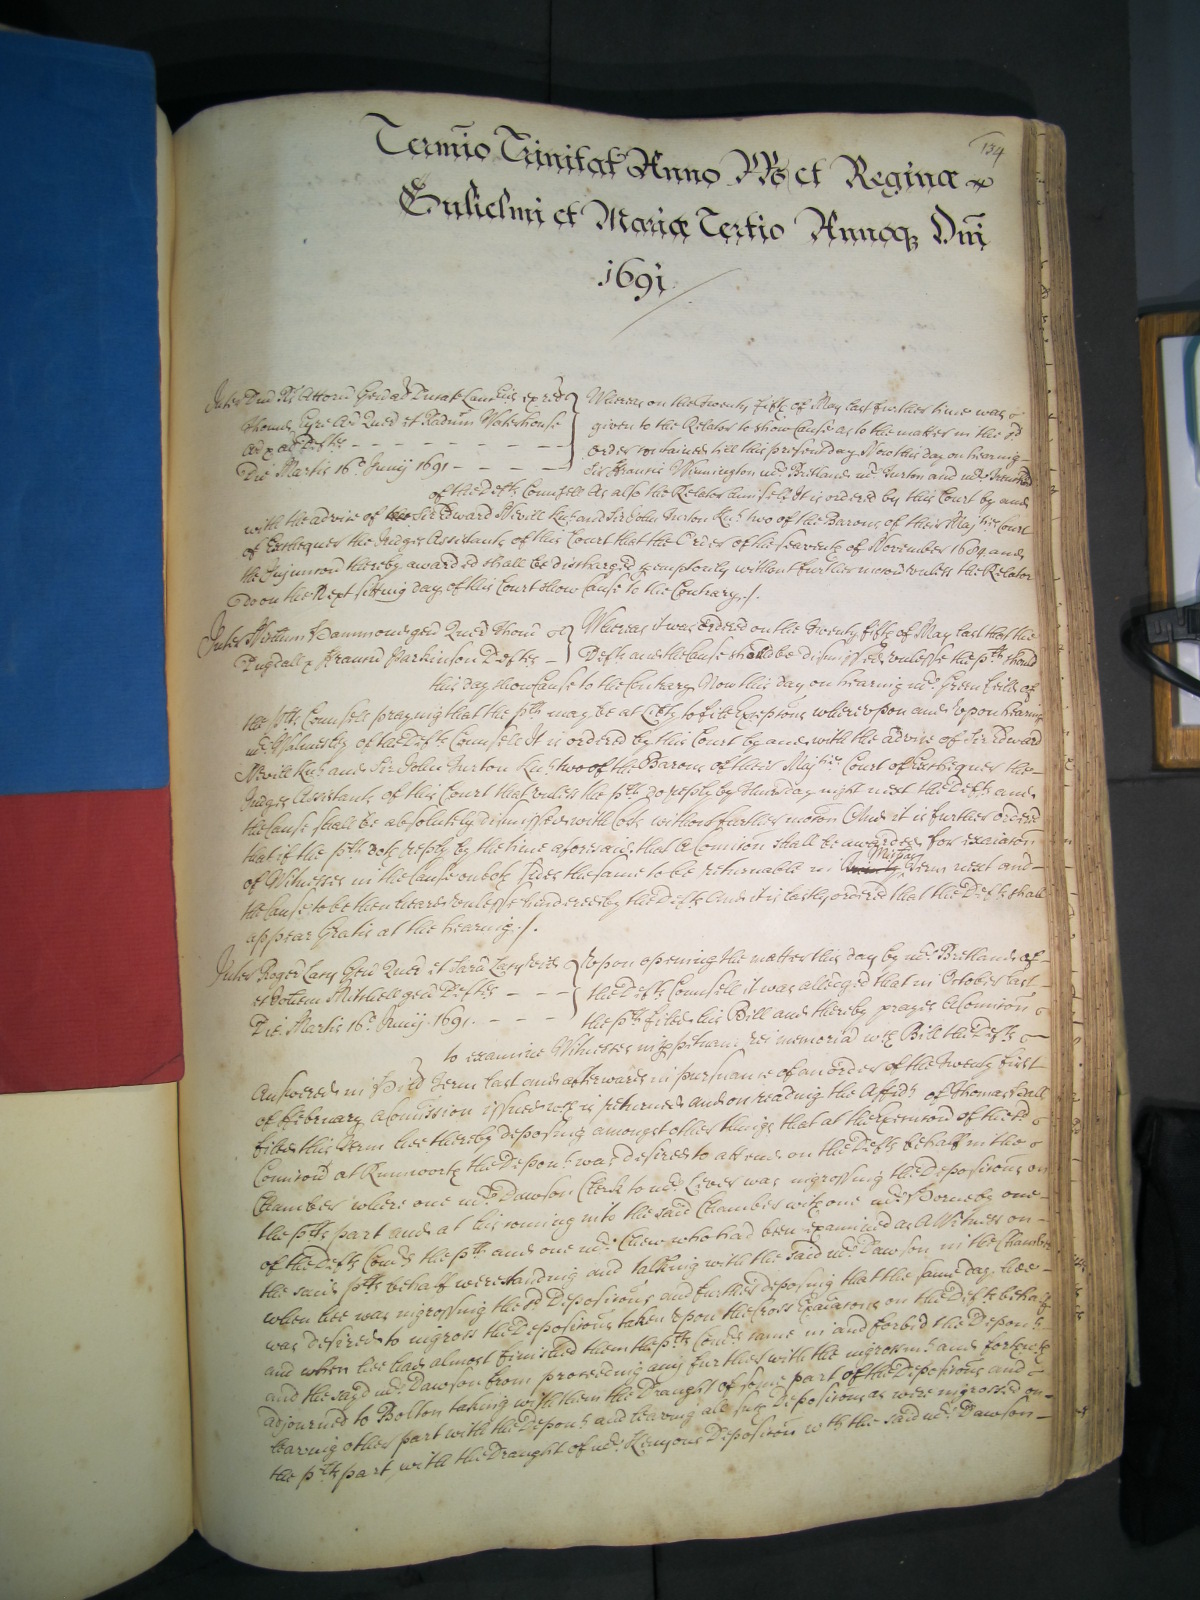 134
Termio Trinitat Anno RRs et Reginæ
Gulielmi et Mariæ Tertio Annoq Dni
1691
Inter Dnd Rs Attorn Gen Ducat Lancr ex rel
Thome Eyre Ar Quer et Radum Waterhouse
Ar et al Defts
Die Martis 16o Junij 1691
Whereas on the twenty fifth of May last further time was
given to the Relator to show Cause as to the matter in the sd
order contained till this present day Now this day on hearing
Sir Francis Winnington mr Bretland mr Turton and mr
of the Defts Councell As also the Relator himself It is ordered by this Court by and
with the advice of Sir Edward Nevill Knt and Sir John Turton Knt two of the Barons of their Majties Court
of Exchequer the Judges Assistants of this Court that the Order of the seaventh of November 1689 and
the Injuncon thereby awarded shall be discharged peremptorily without further mocon unless the Relator
do on the Next sitting day of this Court show Cause to the Contrary./.
Inter Hammond gen Quer Thom
Dugdall et Parkinson Defts
Whereas it was Ordered on the Twenty fifth of May last that the
Defts and the Cause should be dismissed unlesse the plt should
this day show Cause to the Contrary Now this day on hearing mr Greenfeild of
the plts Councell praying that the plt may be at Liberty to file Excepcons whereupon and upon hearing
mr Walmesley of the Defts Councell It is ordered by this Court by and with the advice of Sir Edward
Nevill Knt and Sir John Turton Knt two of the Barons of their Majties Court of Exchequer the
Judges Assistants of this Court that unless the plt do reply by Thursday night next the Defts and
the Cause shall be absolutely dismissed with Costs without further mocon And it is further ordered
that if the plt doth reply by the time aforesaid that A Comicon shall be awarded for exaiacon
of Witnesses in the Cause on both sides the same to be returnable in Michas Term next and
the Cause to be then heard unlesse hindered by the Defts And it is lastly ordered that the Defts shall
appear Gratis at the hearing./.
Inter Roger Lacy Gen Quer et Sara Lacy
et Mitchell gen Defts
Die Martis 16o Junij 1691
Upon opening the matter this day by mr Bretland of
the Defts Councell it was alledged that in October last
the plt filed his Bill and thereby prayes A Comicon
to examine Witnesses in ppetuam rei memoriam wch Bill the Defts
Answered in Term last and afterwards in pursuance of an order of the Twenty first
of February A Comission issued wch is returned and on reading the Affidt of Thomas
filed this Term hee thereby deposing amongst other things that at the Execucon of the sd
Comicon at Rumworth the Depont was desired to attend on the Defts behalf in the
Chamber where one mr Dawson Clerk to mr Lever was ingrossing the Deposicons on
the plts part and at his coming into the said Chamber with one mr Horneby one
of the Defts Comrs the plt and one mr Chew who had been examined as A Witness on
the said plts behalf were standing and talking with the said mr Dawson in the Chamber
when hee was ingrossing the sd Deposicons and further deposing that the same day hee
was desired to ingross the Deposicons taken upon the Cross Exaiacons on the Defts behalf
and when hee had almost finished them the plts Comrs came in and forbid the Depont
and the sayd mr Dawson from proceeding any further with the ingrossmt and forthwith
adjourned to Bolton taking with them the Draught of some part of the Deposicons and
leaving other part with the Depont and leaving all such Deposicons as were ingrossed on
the plts part with the Draught of mr Kenyons Deposicon with the said mr Dawson